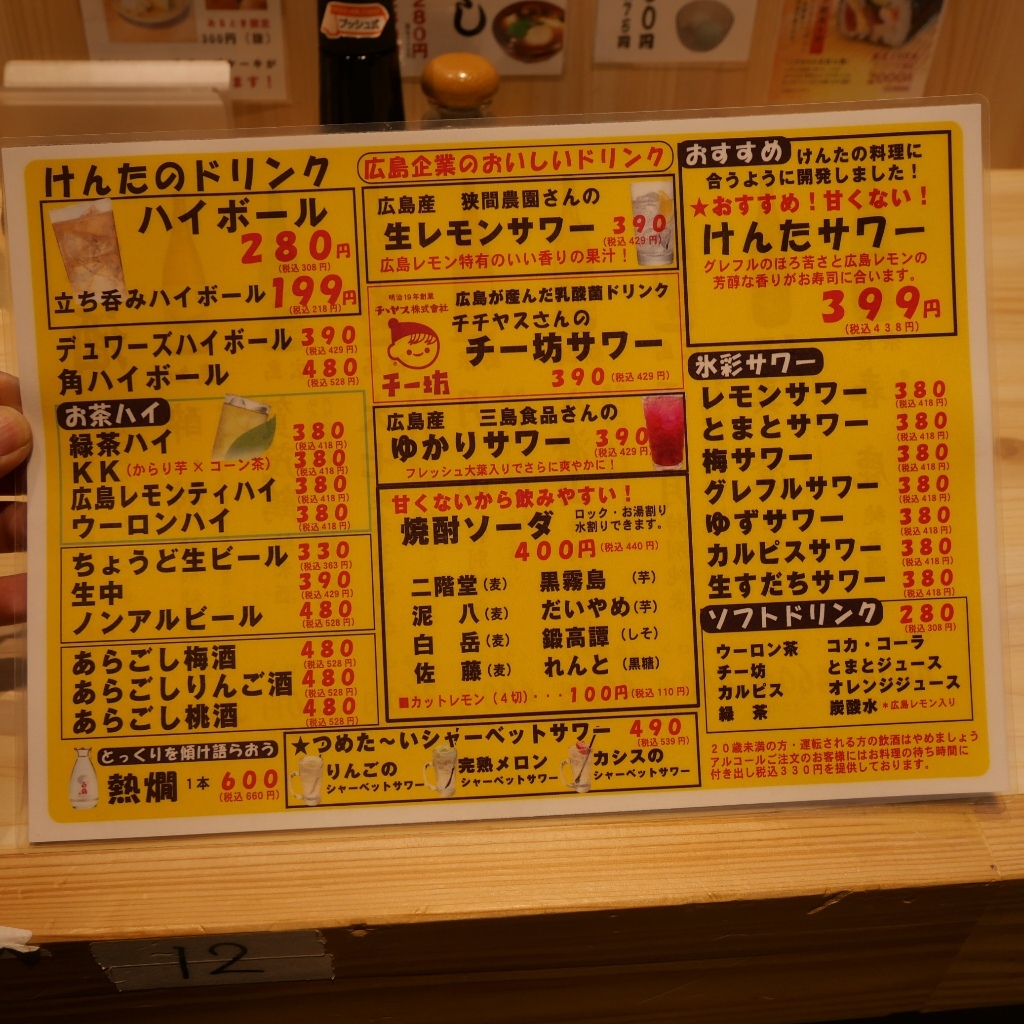 プッシュ式
300円(抜)
280円
けんたのドリンク
ハイボール
280円
(税込308円)
立ち呑みハイボール 199円
(税込218円)
デュワーズハイボール 390
(税込429円)
角ハイボール 480
(税込528円)
お茶ハイ
緑茶ハイ 380
(税込418円)
KK(からり芋×コーン茶) 380
(税込418円)
広島レモンティハイ 380
(税込418円)
ウーロンハイ 380
(税込418円)
ちょうど生ビール 330
(税込363円)
生中 390
(税込429円)
ノンアルビール 480
(税込528円)
あらごし梅酒 480
(税込528円)
あらごしりんご酒 480
(税込528円)
あらごし桃酒 480
(税込528円)
とっくりを傾け語らおう
熱燗 1本 600
(税込660円)
広島企業のおいしいドリンク
広島産 狭間農園さんの
生レモンサワー 390
(税込429円)
広島レモン特有のいい香りの果汁!
明治19年創業
チチヤス株式会社
チー坊
広島が産んだ乳酸菌ドリンク
チチヤスさんの
チー坊サワー
390(税込429円)
広島産 三島食品さんの
ゆかりサワー 390
(税込429円)
フレッシュ大葉入りでさらに爽やかに!
甘くないから飲みやすい!
焼酎ソーダ
ロック・お湯割り
水割りできます。
400円(税込440円)
二階堂(麦) 黒霧島(芋)
泥八(麦) だいやめ(芋)
白岳(麦) 鍛高譚(しそ)
佐藤(麦) れんと(黒糖)
■カットレモン(4切)・・・100円(税込110円)
★つめた~いシャーベットサワー 490
(税込539円)
りんごの
シャーベットサワー
完熟メロン
シャーベットサワー
カシスの
シャーベットサワー
おすすめ けんたの料理に
合うように開発しました!
★おすすめ!甘くない!
けんたサワー
グレフルのほろ苦さと広島レモンの
芳醇な香りがお寿司に合います。
399円
(税込438円)
氷彩サワー
レモンサワー 380
(税込418円)
とまとサワー 380
(税込418円)
梅サワー 380
(税込418円)
グレフルサワー 380
(税込418円)
ゆずサワー 380
(税込418円)
カルピスサワー 380
(税込418円)
生すだちサワー 380
(税込418円)
ソフトドリンク 280
(税込308円)
ウーロン茶 コカ・コーラ
チー坊 とまとジュース
カルピス オレンジジュース
緑茶 炭酸水 *広島レモン入り
20歳未満の方・運転される方の飲酒はやめましょう
アルコールご注文のお客様にはお料理の待ち時間に
付き出し税込330円を提供しております。
12